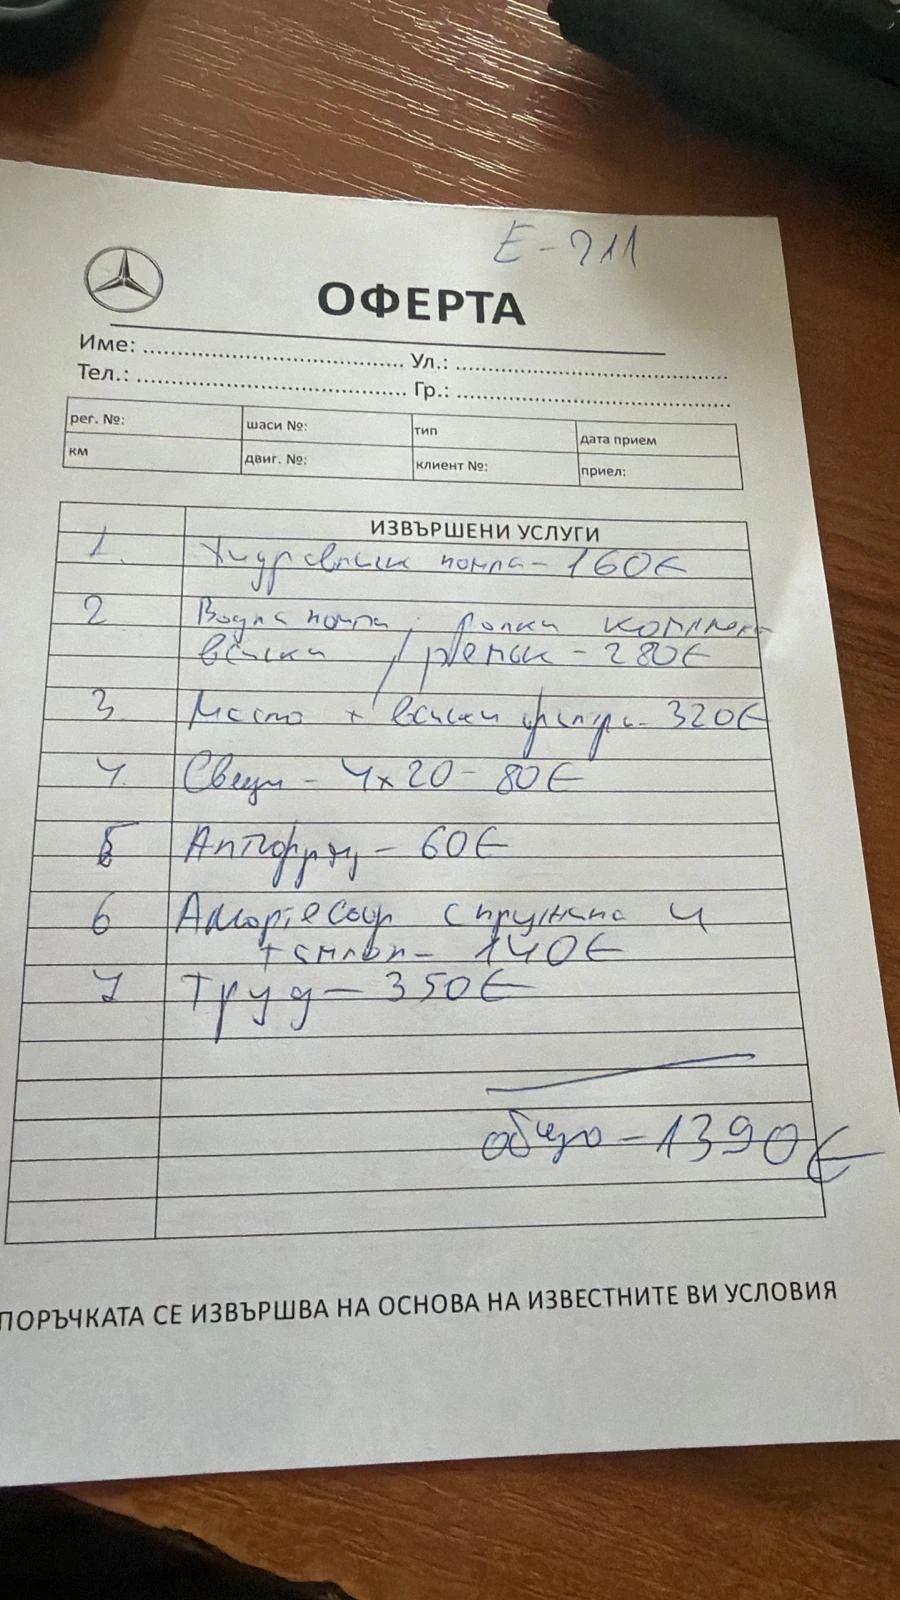 Е-211
ОФЕРТА
Име: ........................ Ул.: ........................
Тел.: ........................ Гр.: ........................
рег. №: шаси №: тип дата прием
км двиг. №: клиент №: приел:
ИЗВЪРШЕНИ УСЛУГИ
1. Хидравлик помпа - 160€
2 Водна помпа, ролки комплект
всички / ремък - 280€
3. Масло + всички филтри - 320€
4. Свещи - 4x20 - 80€
5 Антифриз - 60€
6 Амортесьор спружина и
тампон - 140€
7 Труд - 350€
общо - 1390€
ПОРЪЧКАТА СЕ ИЗВЪРШВА НА ОСНОВА НА ИЗВЕСТНИТЕ ВИ УСЛОВИЯ